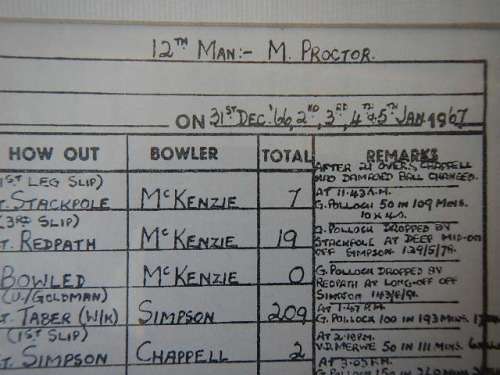 12TH MAN:- M. PROCTOR.
ON 31ST DEC. '66, 2ND, 3RD, 4TH & 5TH JAN. 1967
HOW OUT BOWLER TOTAL REMARKS
AFTER 24 OVERS,
AND DAMAGED BALL CHANGED.
1ST LEG SLIP) AT 11.43 A.M.
T. STACKPOLE McKENZIE 7 G. POLLOCK 50 IN 109 MINS.
10 x 4s.
(3RD SLIP) G. POLLOCK DROPPED BY
T. REDPATH McKENZIE 19 STACKPOLE AT DEEP MID-ON
OFF SIMPSON
BOWLED McKENZIE 0 G. POLLOCK DROPPED BY
REDPATH AT LONG-OFF OFF
(W./GOLDMAN) SIMPSON
T. TABER (W/K) SIMPSON 209 AT 1.47 P.M.
G. POLLOCK 100 IN 193 MINS.
(1ST SLIP) AT 2.18 P.M.
T. SIMPSON CHAPPELL 2 V.D. MERWE 50 IN 111 MINS.
AT 3.03 P.M.
G. POLLOCK 150 IN